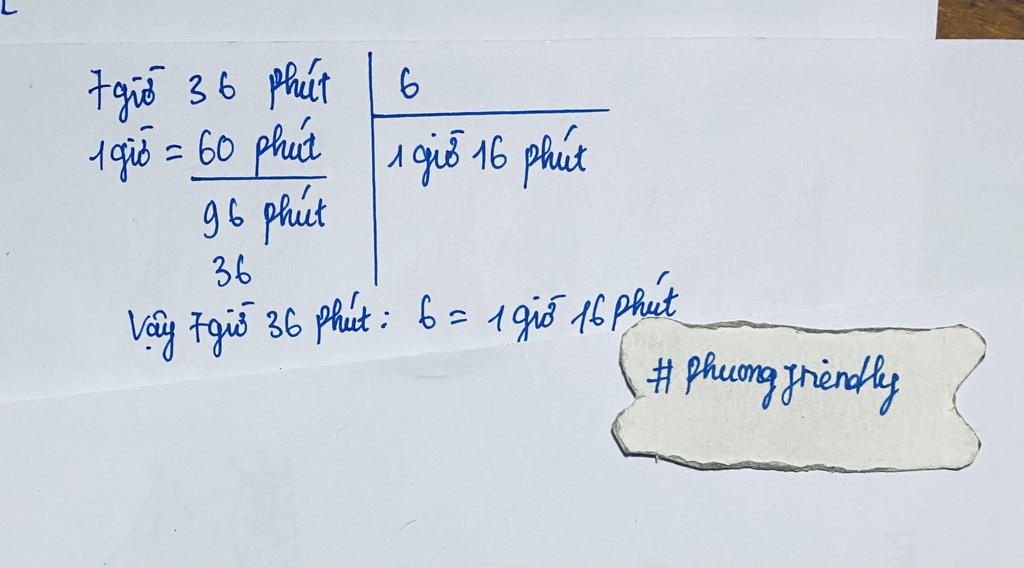 7giờ 36 phút 6
1giờ = 60 phút 1 giờ 16 phút
96 phút
36
Vậy 7giờ 36 phút : 6 = 1 giờ 16 phút
# phuongfriendly